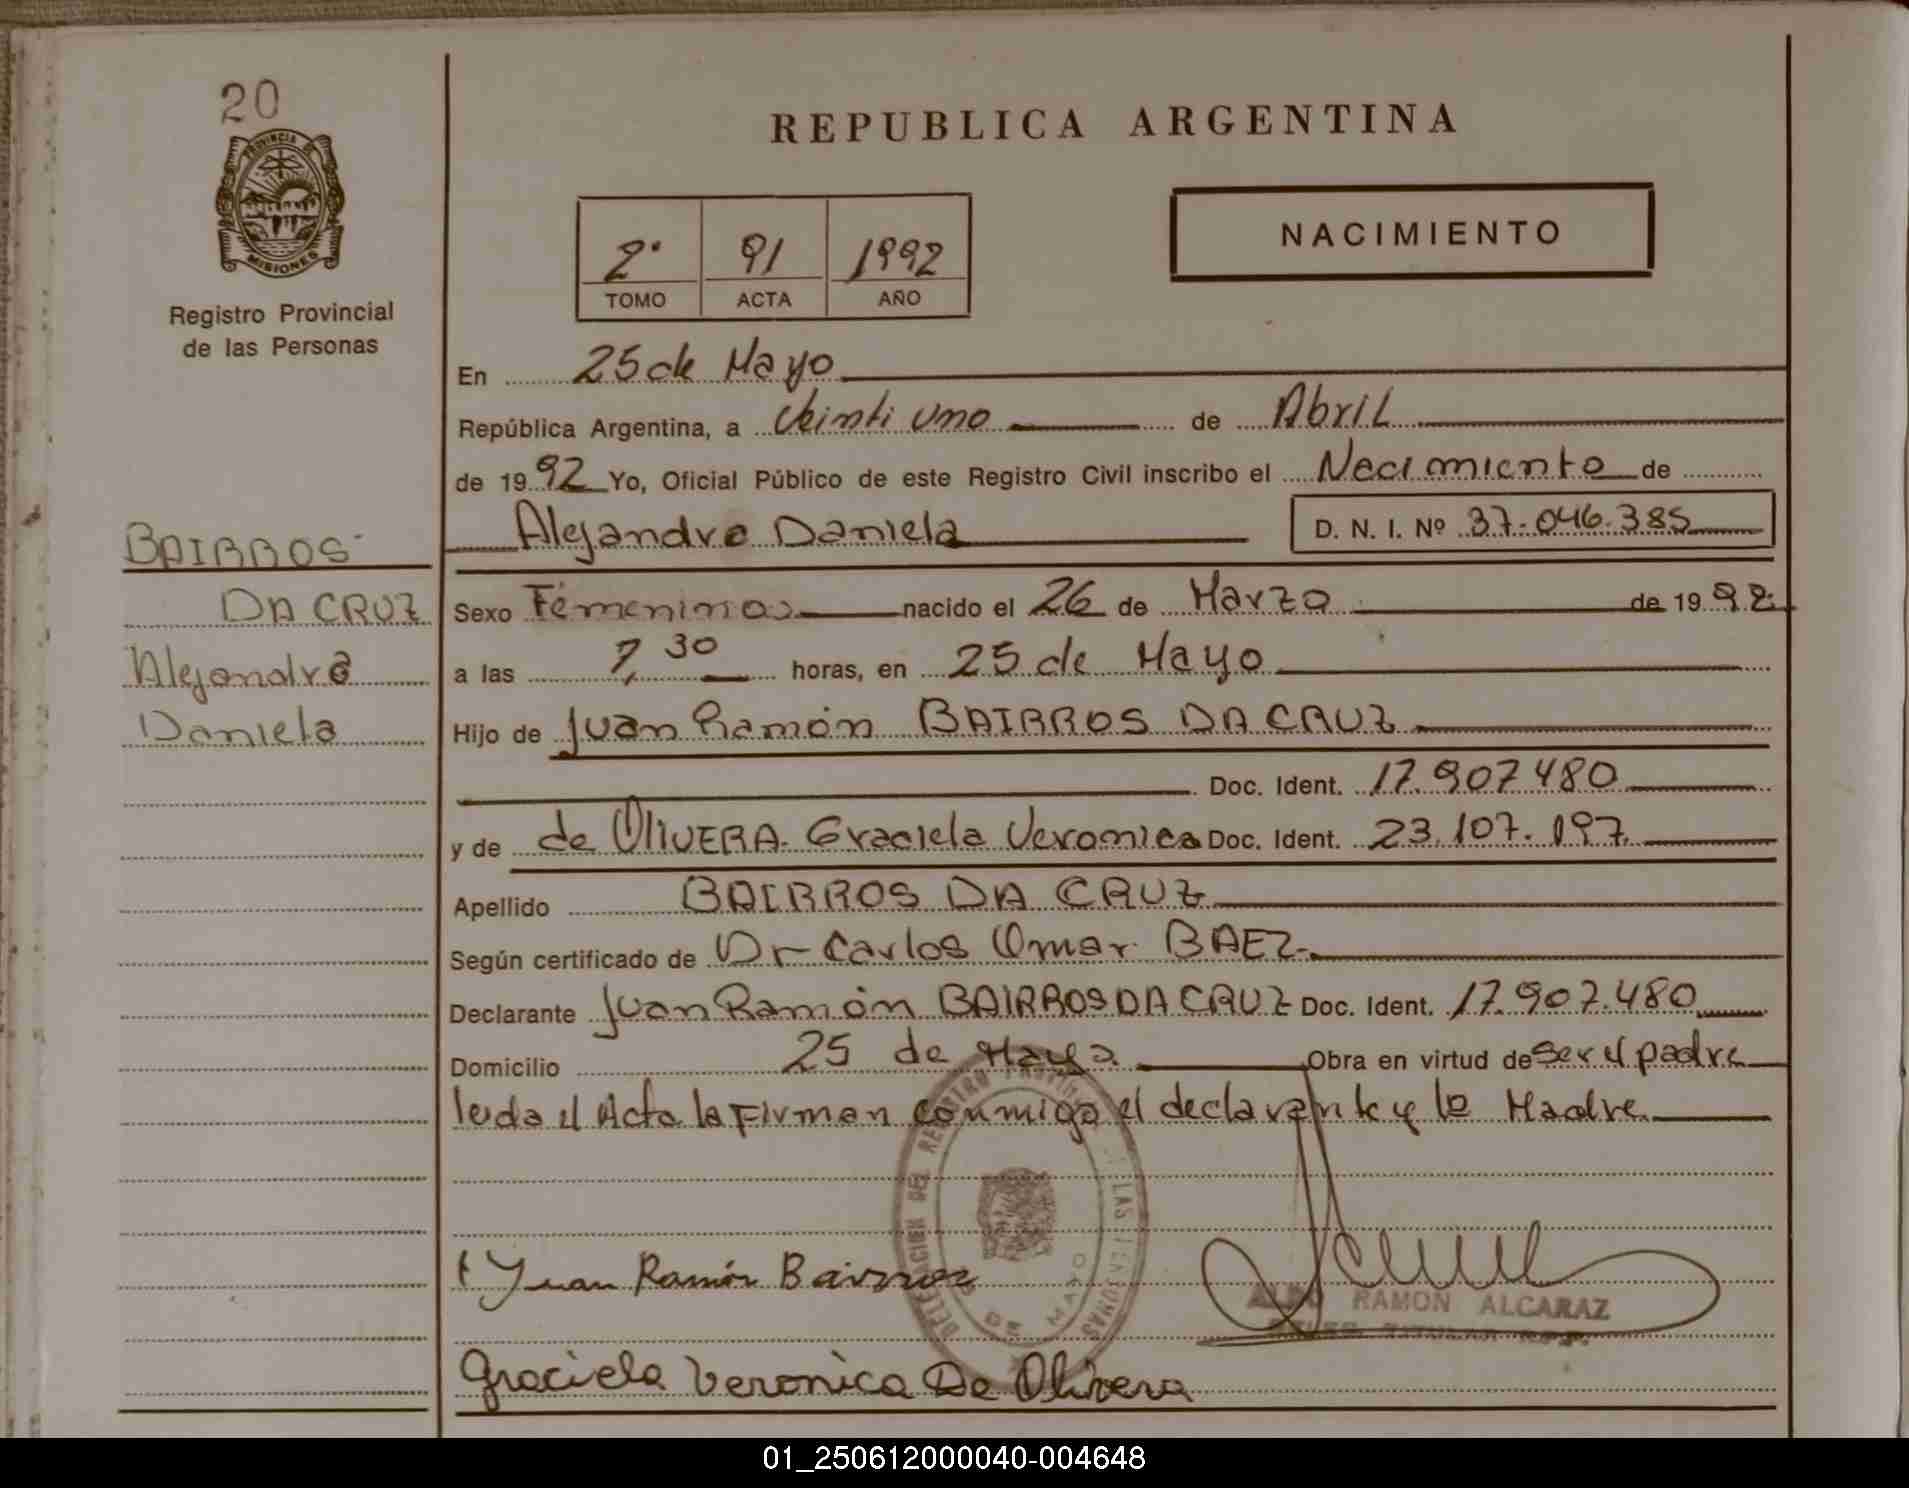 20
PROVINCIA DE
MISIONES
Registro Provincial
de las Personas
BAIRROS
DA CRUZ
Alejandra
Daniela
REPUBLICA ARGENTINA
2° 91 1992
TOMO ACTA AÑO
NACIMIENTO
En 25 de Mayo
República Argentina, a Veinti uno de Abril
de 1992 Yo, Oficial Público de este Registro Civil inscribo el Necimiento de
Alejandra Daniela D. N. I. Nº 37.046.385
Sexo Femenino nacido el 26 de Marzo de 1992
a las 7,30 horas, en 25 de Mayo
Hijo de Juan Ramón BAIRROS DA CRUZ
Doc. Ident. 17.907.480
y de de OliVERA Graciela Veronica Doc. Ident. 23.107.197
Apellido BAIRROS DA CRUZ
Según certificado de Dr Carlos Omar BAEZ
Declarante Juan Ramón BAIRROS DA CRUZ Doc. Ident. 17.907.480
Domicilio 25 de Mayo Obra en virtud de ser el padre
leida el Acta la Firman conmigo el declarante y la Madre
DELEGACION DEL REGISTRO PROVINCIAL DE LAS PERSONAS
25 DE MAYO
Juan Ramón Bairros
RAMON ALCARAZ
Graciela Veronica De Olivera
01_250612000040-004648